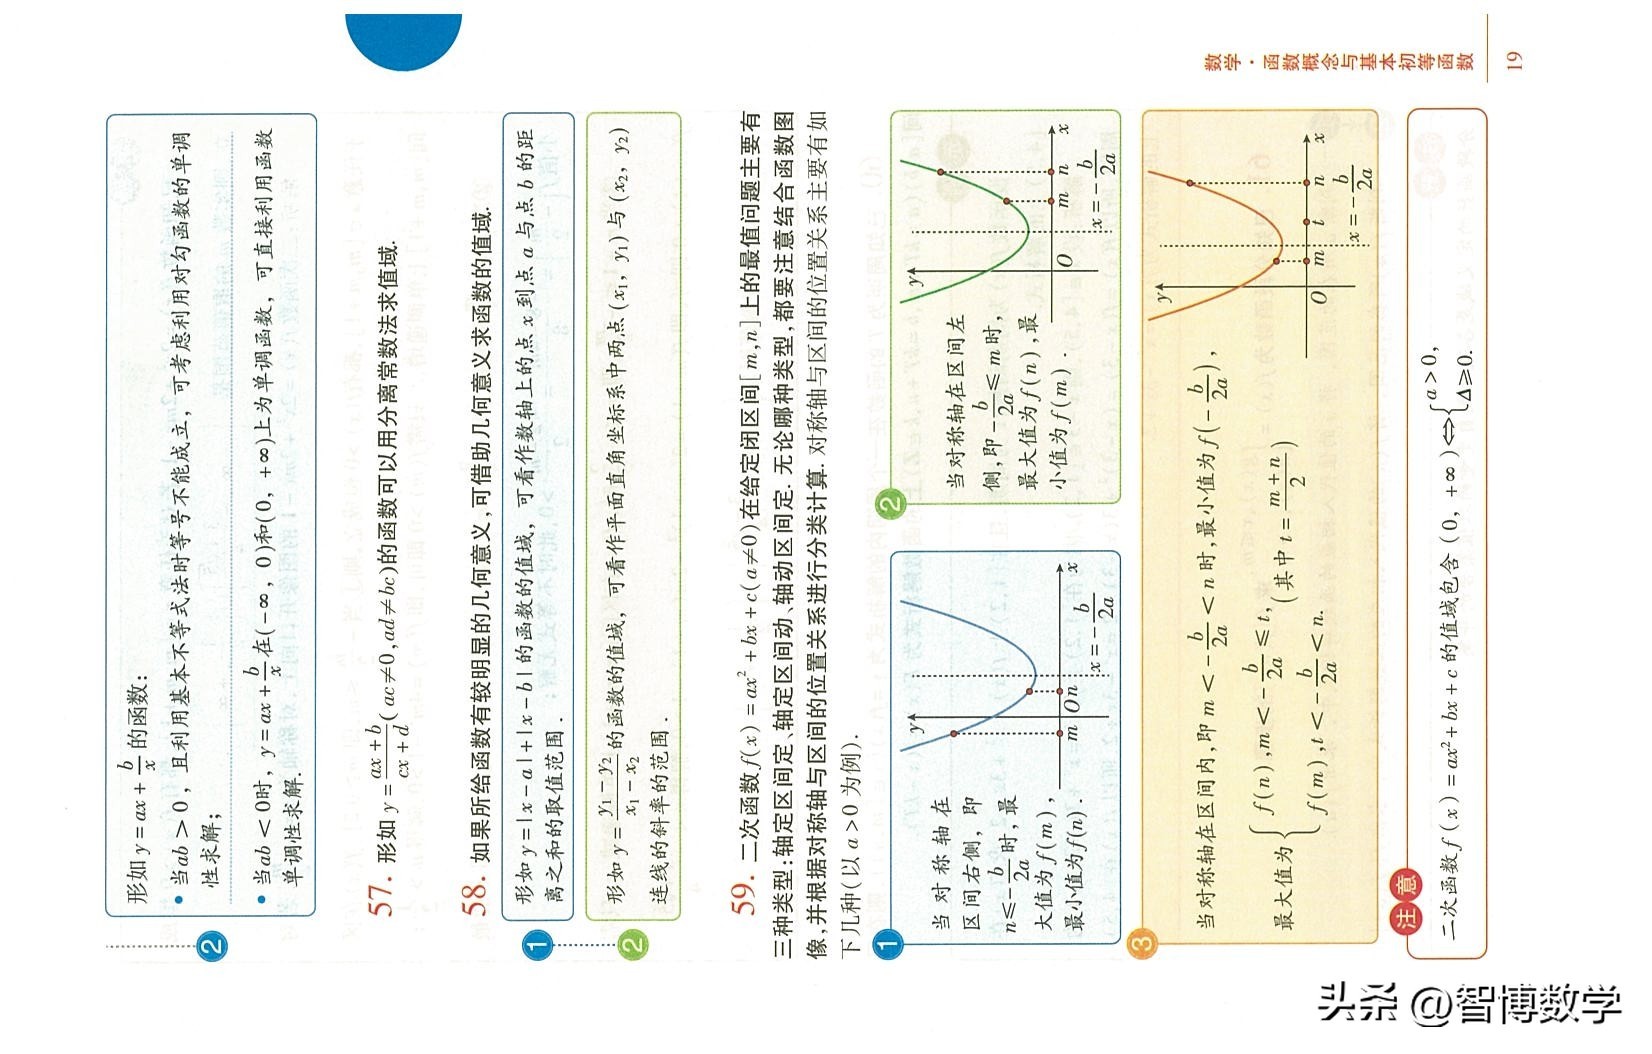 形如 y=ax+b/x 的函数:
• 当ab>0，且利用基本不等式法时等号不能成立，可考虑利用对勾函数的单调
性求解;
• 当ab<0时，y=ax+b/x在(-∞，0)和(0，+∞)上为单调函数，可直接利用函数
单调性求解.
2
57. 形如 y=(ax+b)/(cx+d)(ac≠0,ad≠bc)的函数可以用分离常数法求值域.
58. 如果所给函数有较明显的几何意义,可借助几何意义求函数的值域.
1
形如 y=|x-a|+|x-b|的函数的值域，可看作数轴上的点x到点a与点b的距
离之和的取值范围.
2
形如 y=(y₁-y₂)/(x₁-x₂)的函数的值域，可看作平面直角坐标系中两点(x₁，y₁)与(x₂，y₂)
连线的斜率的范围.
59. 二次函数f(x)=ax²+bx+c(a≠0)在给定闭区间[m,n]上的最值问题主要有
三种类型:轴定区间定、轴定区间动、轴动区间定.无论哪种类型,都要注意结合函数图
像,并根据对称轴与区间的位置关系进行分类计算.对称轴与区间的位置关系主要有如
下几种(以a>0为例).
1
当对称轴在
区间右侧，即
n≤-b/2a时,最
大值为f(m),
最小值为f(n).
y
m
O
n
x
x=-b/2a
2
当对称轴在区间左
侧,即-b/2a≤m时,
最大值为f(n),最
小值为f(m).
y
O
m
n
x
x=-b/2a
3
当对称轴在区间内,即m<-b/2a<n时,最小值为f(-b/2a),
最大值为{f(n),m<-b/2a≤t,
f(m),t<-b/2a<n.
(其中t=(m+n)/2)
y
O
m
t
n
x
x=-b/2a
注意
二次函数f(x)=ax²+bx+c的值域包含(0，+∞)⇔{a>0,
Δ≥0.
数学·函数概念与基本初等函数
19
头条 @智博数学